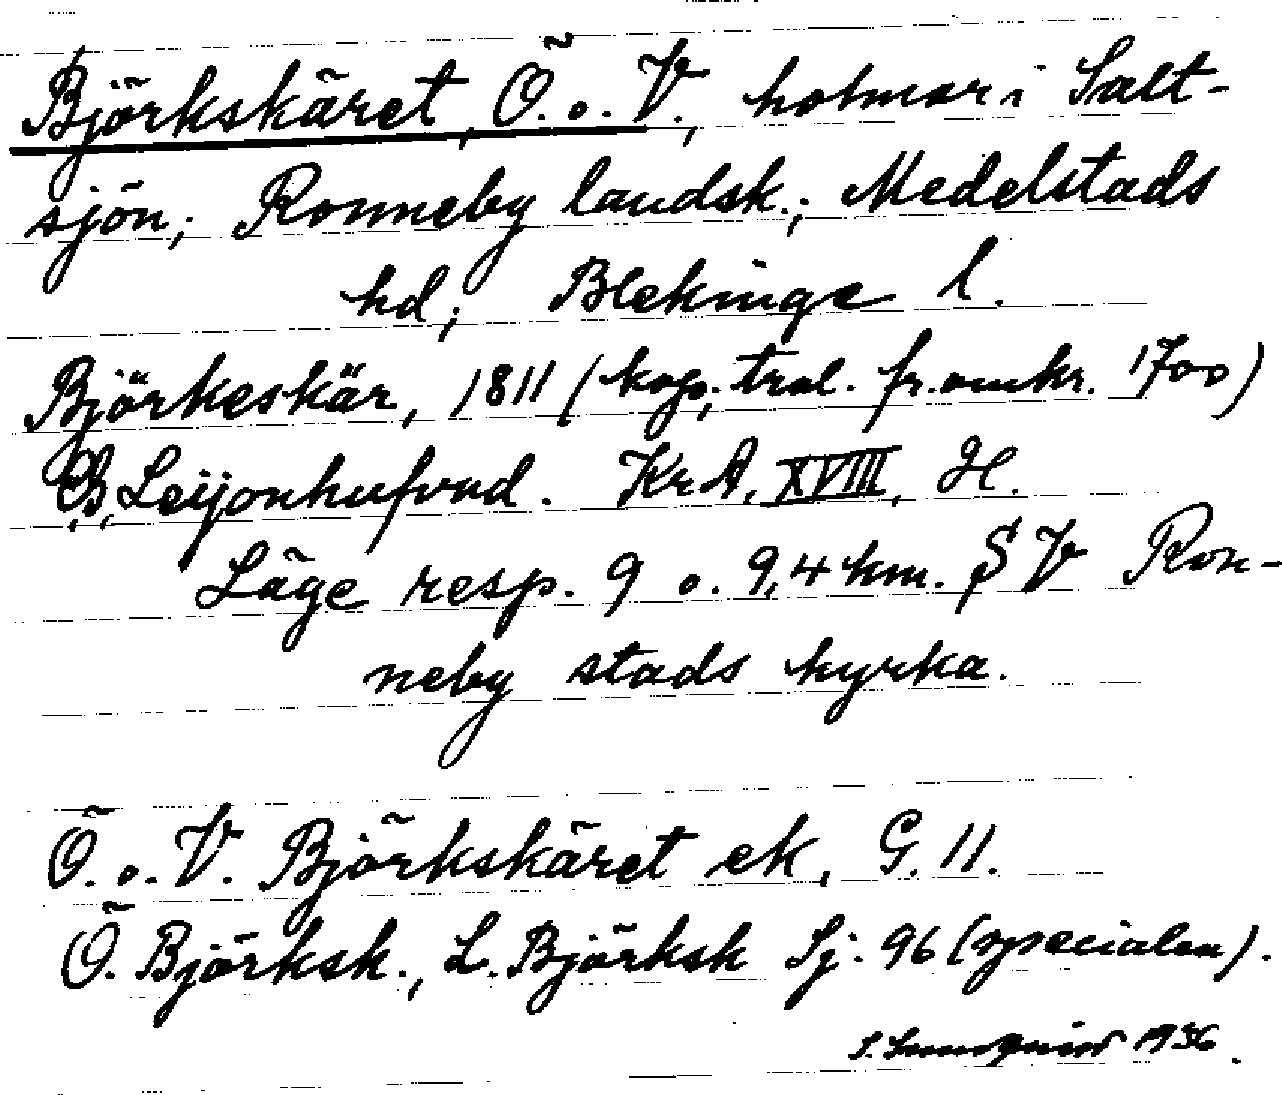 Björkskäret, Ö. o. V., holmar i Salt-
sjön; Ronneby landsk.; Medelstads
hd; Blekinge l.
Björkeskär, 1811 (kop. tral. fr. omkr. 1700)
B. Leijonhufvud. KrA, XVIII, H.
Läge resp. 9 o. 9,4 km. SV Ron-
neby stads kyrka.
Ö. o. V. Björkskäret ek, G. 11.
Ö. Björksk., L. Björksk Sj. 96 (specialen).
1936.